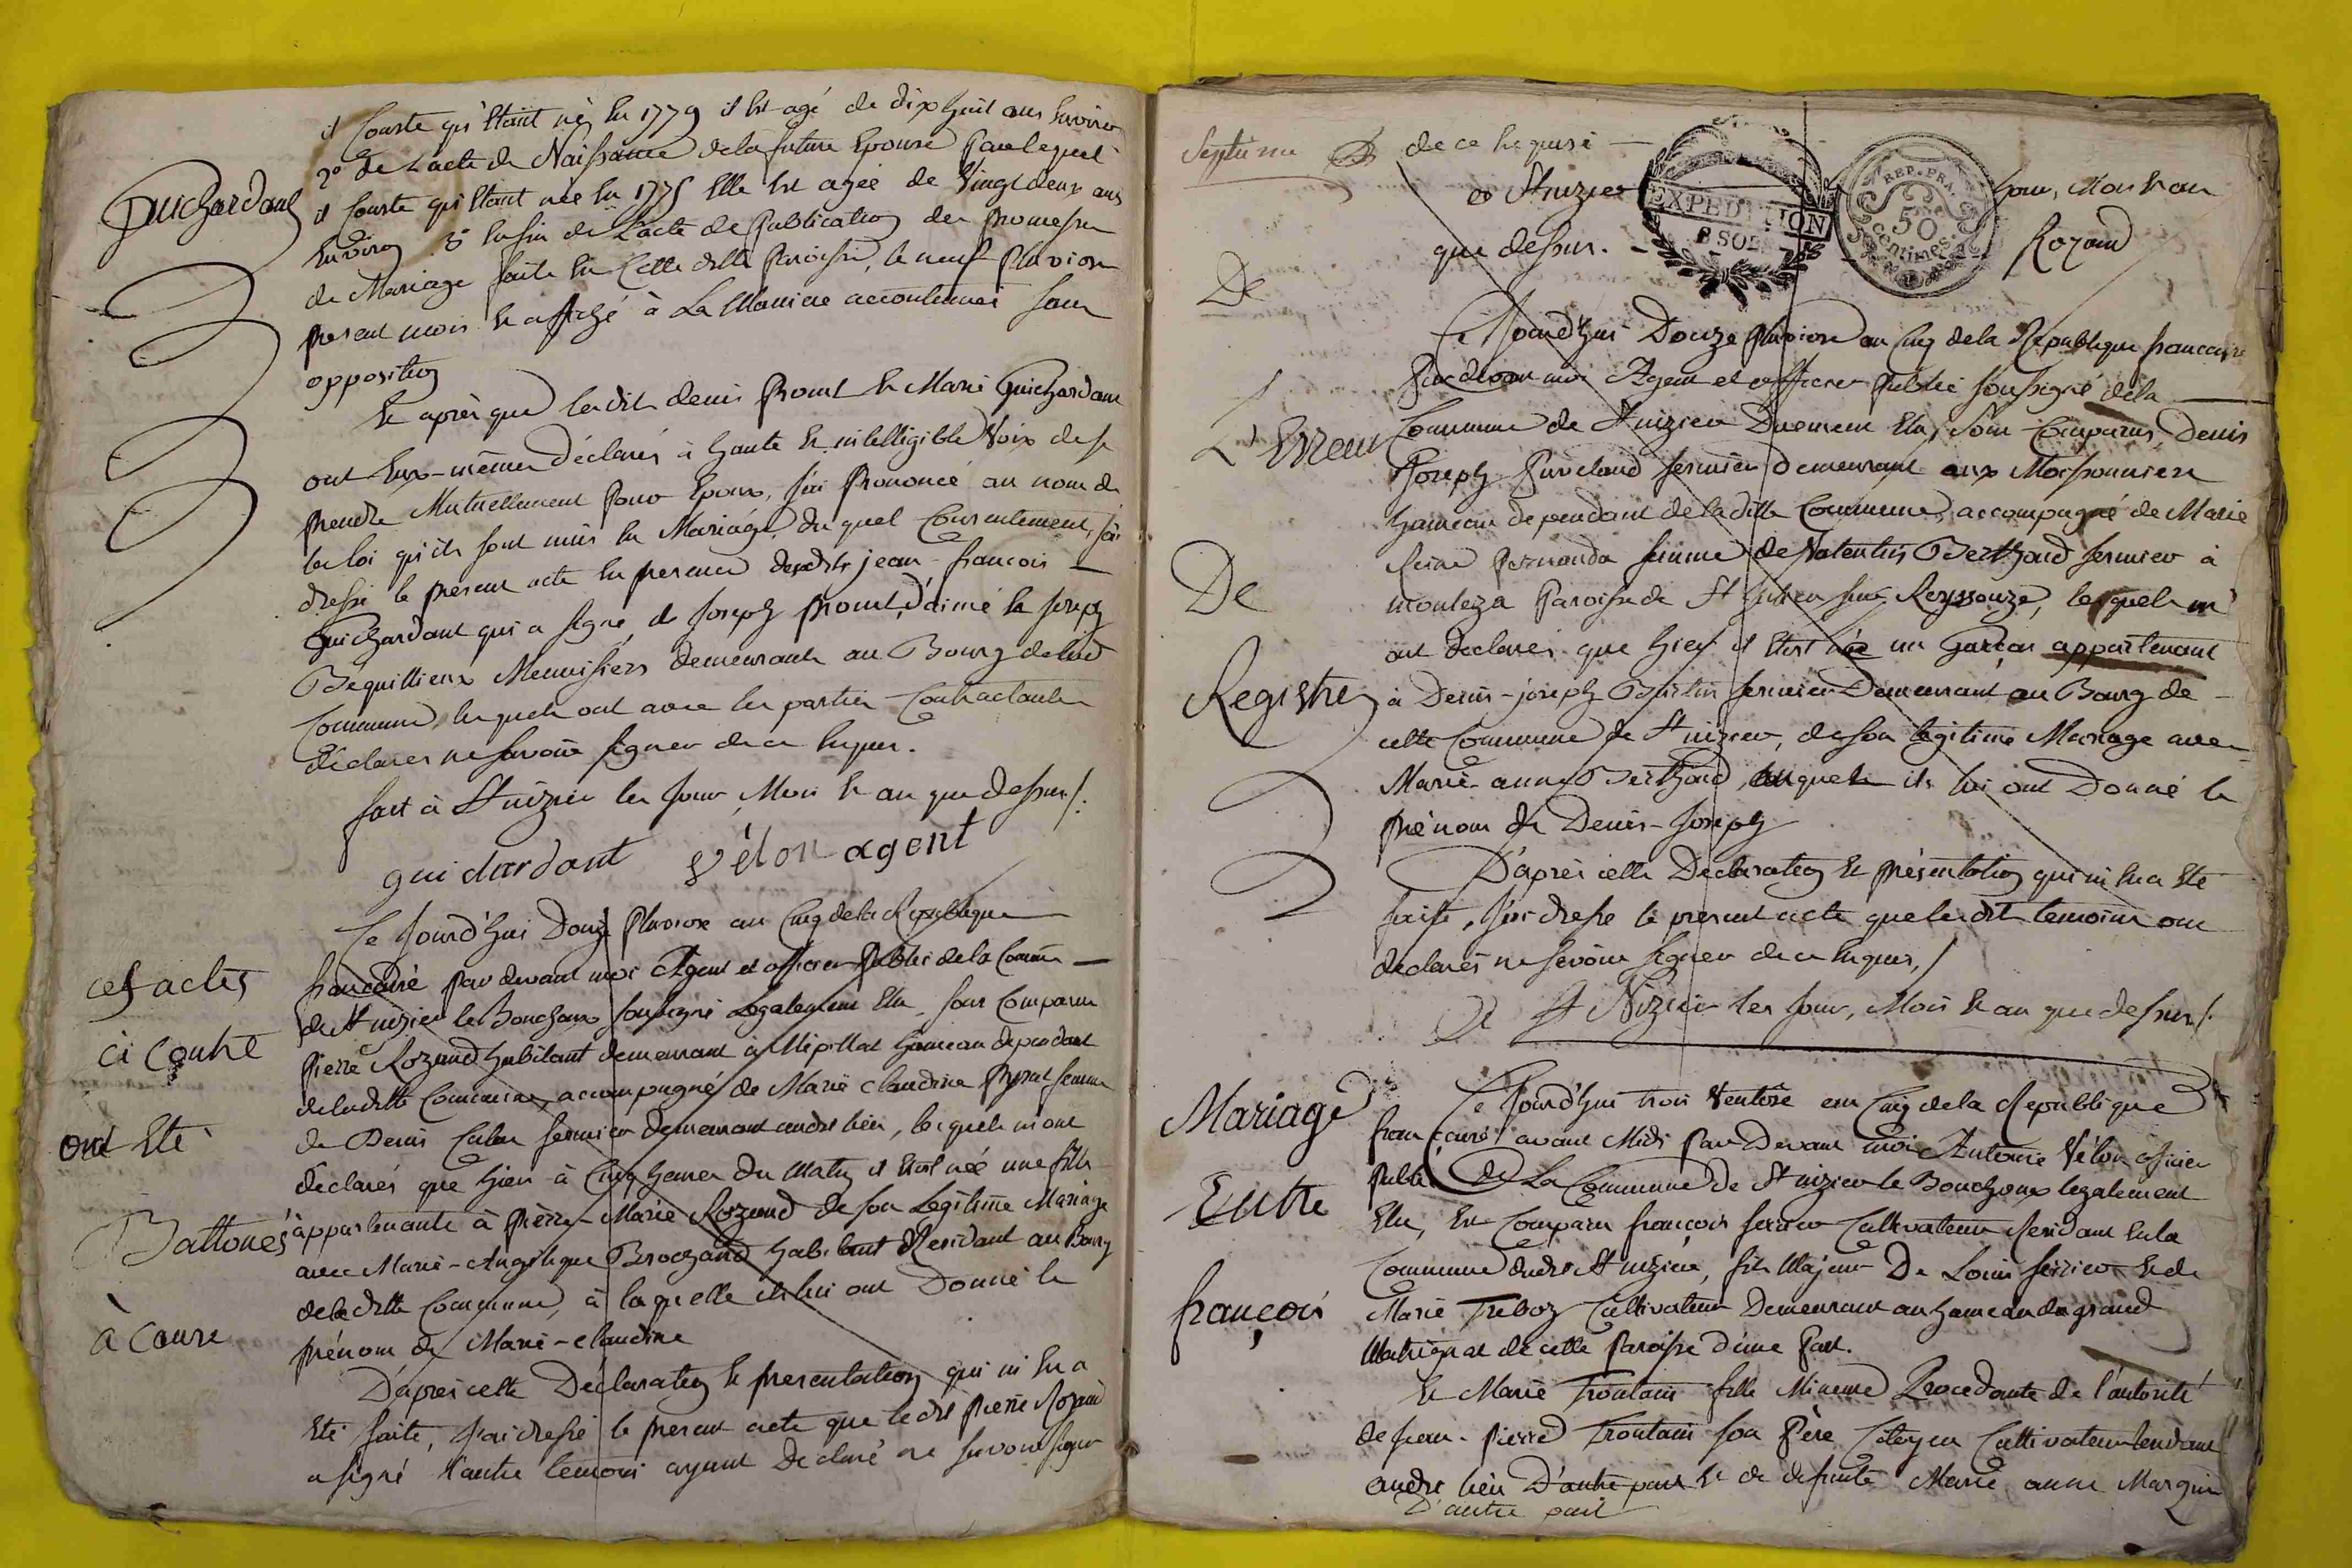 Guichardant
il Conste qu'Etant né En 1779 il Est agé de dix huit ans Environ
2° de L'acte de Naissance de la future Epouse Par lequel
il Conste qu'Etant née En 1775 Elle Est agée de Vingt deux ans
Environ 3° Enfin de L'acte de Publication des promesses
de Mariage faite En Cette ditte Paroisse, le neuf Pluviose
present mois Et affiché à La Maniere accoutumée sans
opposition
Et après que lesdits denis Promt Et Marie Guichardant
ont Eux-mêmes Déclarés à haute Et intelligible Voix de se
prendre Mutuellement Pour Epoux, j'ai Prononcé au nom de
la loi qu'ils sont unis En Mariage, du quel Consentement, j'ai
dressé le présent acte En presence desdits jean-francois
Guichardant qui a signé, de Joseph Promt, d'aimé Et Joseph
Bequillieux Menuisiers demeurants au Bourg de lad
Commune, lesquels ont avec les parties Contractantes
déclarés ne savoir signer de ce Enquis.
fait à St nizier les Jour, Mois Et an que dessus /.
guichardant Vélon agent
Ce Jourd'hui Douze Pluviose an Cinq de la Republique
francaise par devant moi Agent et officier Public de la Comune
de St nizier le Bouchoux soussigné Legalement Elu, sont Comparus
Pierre Rozand habitant demeurant à Mépillat hameau dependant
de la ditte Commune, accompagné de Marie Claudine Pyrat femme
de Denis fermier demeurant audit lieu, lesquels m'ont
déclarés que hier à Cinq heures du Matin il Etoit née une fille
appartenante à Pierre-Marie Rozand de son Legitime Mariage
avec Marie-Angelique Brochand habitant Residant au Bourg
de la ditte Commune, à laquelle ils lui ont Donné le
prénom de Marie-claudine
D'après cette Déclaration Et presentation qui m'En a
Eté faite, J'ai dressé le present acte que ledit Pierre Rozand
a signé l'autre temoin ayant Declaré ne savoir signer
ces actes
ci contre
ont Eté
Battonés
à Cause
Septieme
de ce Enquis
a St nizier
que dessus.
EXPEDITION
8 SOLS
REP. FRA.
50
centimes.
Jour, Mois Et an
Rozand
De
L'Erreur
De
Registre
Ce Jourd'hui Douze Pluviose an Cinq de la Republique francaise
Par devant moi Agent et officier Public soussigné de la
Commune de St nizier Duement Elu, sont Comparus, Denis
Joseph fermier demeurant aux Moissonniers
hameau dependant de la ditte Commune, accompagné de Marie
femme de Valentin Berthaud fermier à
monteza Paroisse de St Julien sur Reyssouze, lesquels m'
ont declarés que hier il Etoit née un Garçon appartenant
à Denis-joseph fermier Demeurant au Bourg de
cette Commune de St nizier, de son légitime Mariage avec
Marie-anne Berthaud, auquel ils lui ont Donné le
prénom de Denis-Joseph
D'après cette Declaration Et présentation qui m'En a Eté
faite, J'ai dressé le present acte que lesdits temoins ont
declarés ne sçavoir signer de ce Enquis, /
A St Nizier les Jour, Mois Et an que dessus /.
Mariage
Entre
françois
Ce Jourd'hui trois Ventôse an Cinq de la Republique
francaise avant Midi Par Devant moi Antoine Vélon officier
Public De La Commune de St nizier le Bouchoux legalement
Elu, Est Comparu françois ferrier Cultivateur Residant En la
Commune dudit St nizier, fils Majeur De Louis ferrier Et de
Marie Treboz Cultivateur Demeurant au hameau du grand
de cette Paroisse d'une Part.
Et Marie Troulain fille Mineure Procedante de l'autorité
de jean-Pierre Troulain son Père Citoyen Cultivateur
audit lieu D'autre part Et de defunte Marie anne Marguin
D'autre part